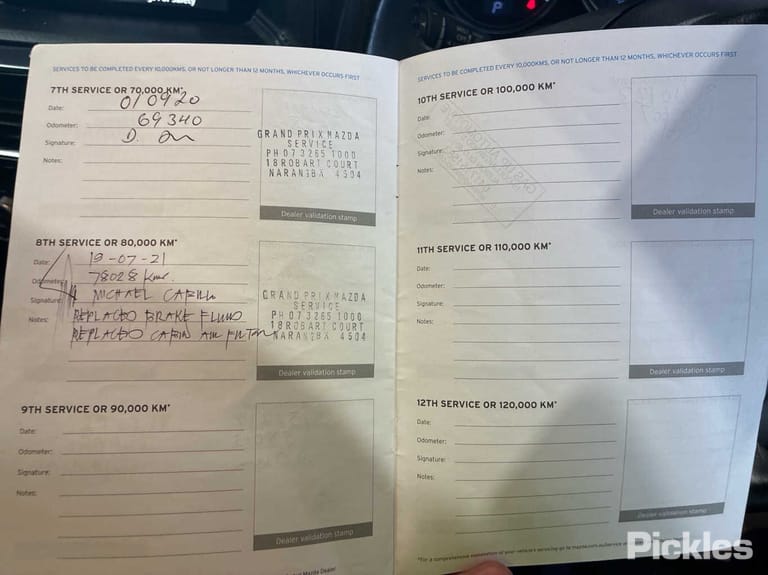 SERVICES TO BE COMPLETED EVERY 10,000KMS, OR NOT LONGER THAN 12 MONTHS, WHICHEVER OCCURS FIRST
7TH SERVICE OR 70,000 KM*
Date: 010920
Odometer: 69340
Signature: D.
Notes:
GRAND PRIX MAZDA
SERVICE
PH 07 3265 1000
18 ROBART COURT
NARANGBA 4504
Dealer validation stamp
8TH SERVICE OR 80,000 KM*
Date: 19-07-21
Odometer: 78028 Kms.
Signature: MICHAEL
Notes: REPLACED BRAKE FLUID
REPLACED CABIN AIR FILTER
GRAND PRIX MAZDA
SERVICE
PH 07 3265 1000
18 ROBART COURT
NARANGBA 4504
Dealer validation stamp
9TH SERVICE OR 90,000 KM*
Date:
Odometer:
Signature:
Notes:
Dealer validation stamp
Mazda Dealer
SERVICES TO BE COMPLETED EVERY 10,000KMS, OR NOT LONGER THAN 12 MONTHS, WHICHEVER OCCURS FIRST
10TH SERVICE OR 100,000 KM*
Date:
Odometer:
Signature:
Notes:
Dealer validation stamp
11TH SERVICE OR 110,000 KM*
Date:
Odometer:
Signature:
Notes:
Dealer validation stamp
12TH SERVICE OR 120,000 KM*
Date:
Odometer:
Signature:
Notes:
Dealer validation stamp
*For a comprehensive explanation of your vehicle's servicing go to mazda.com.au/service
Pickles
P